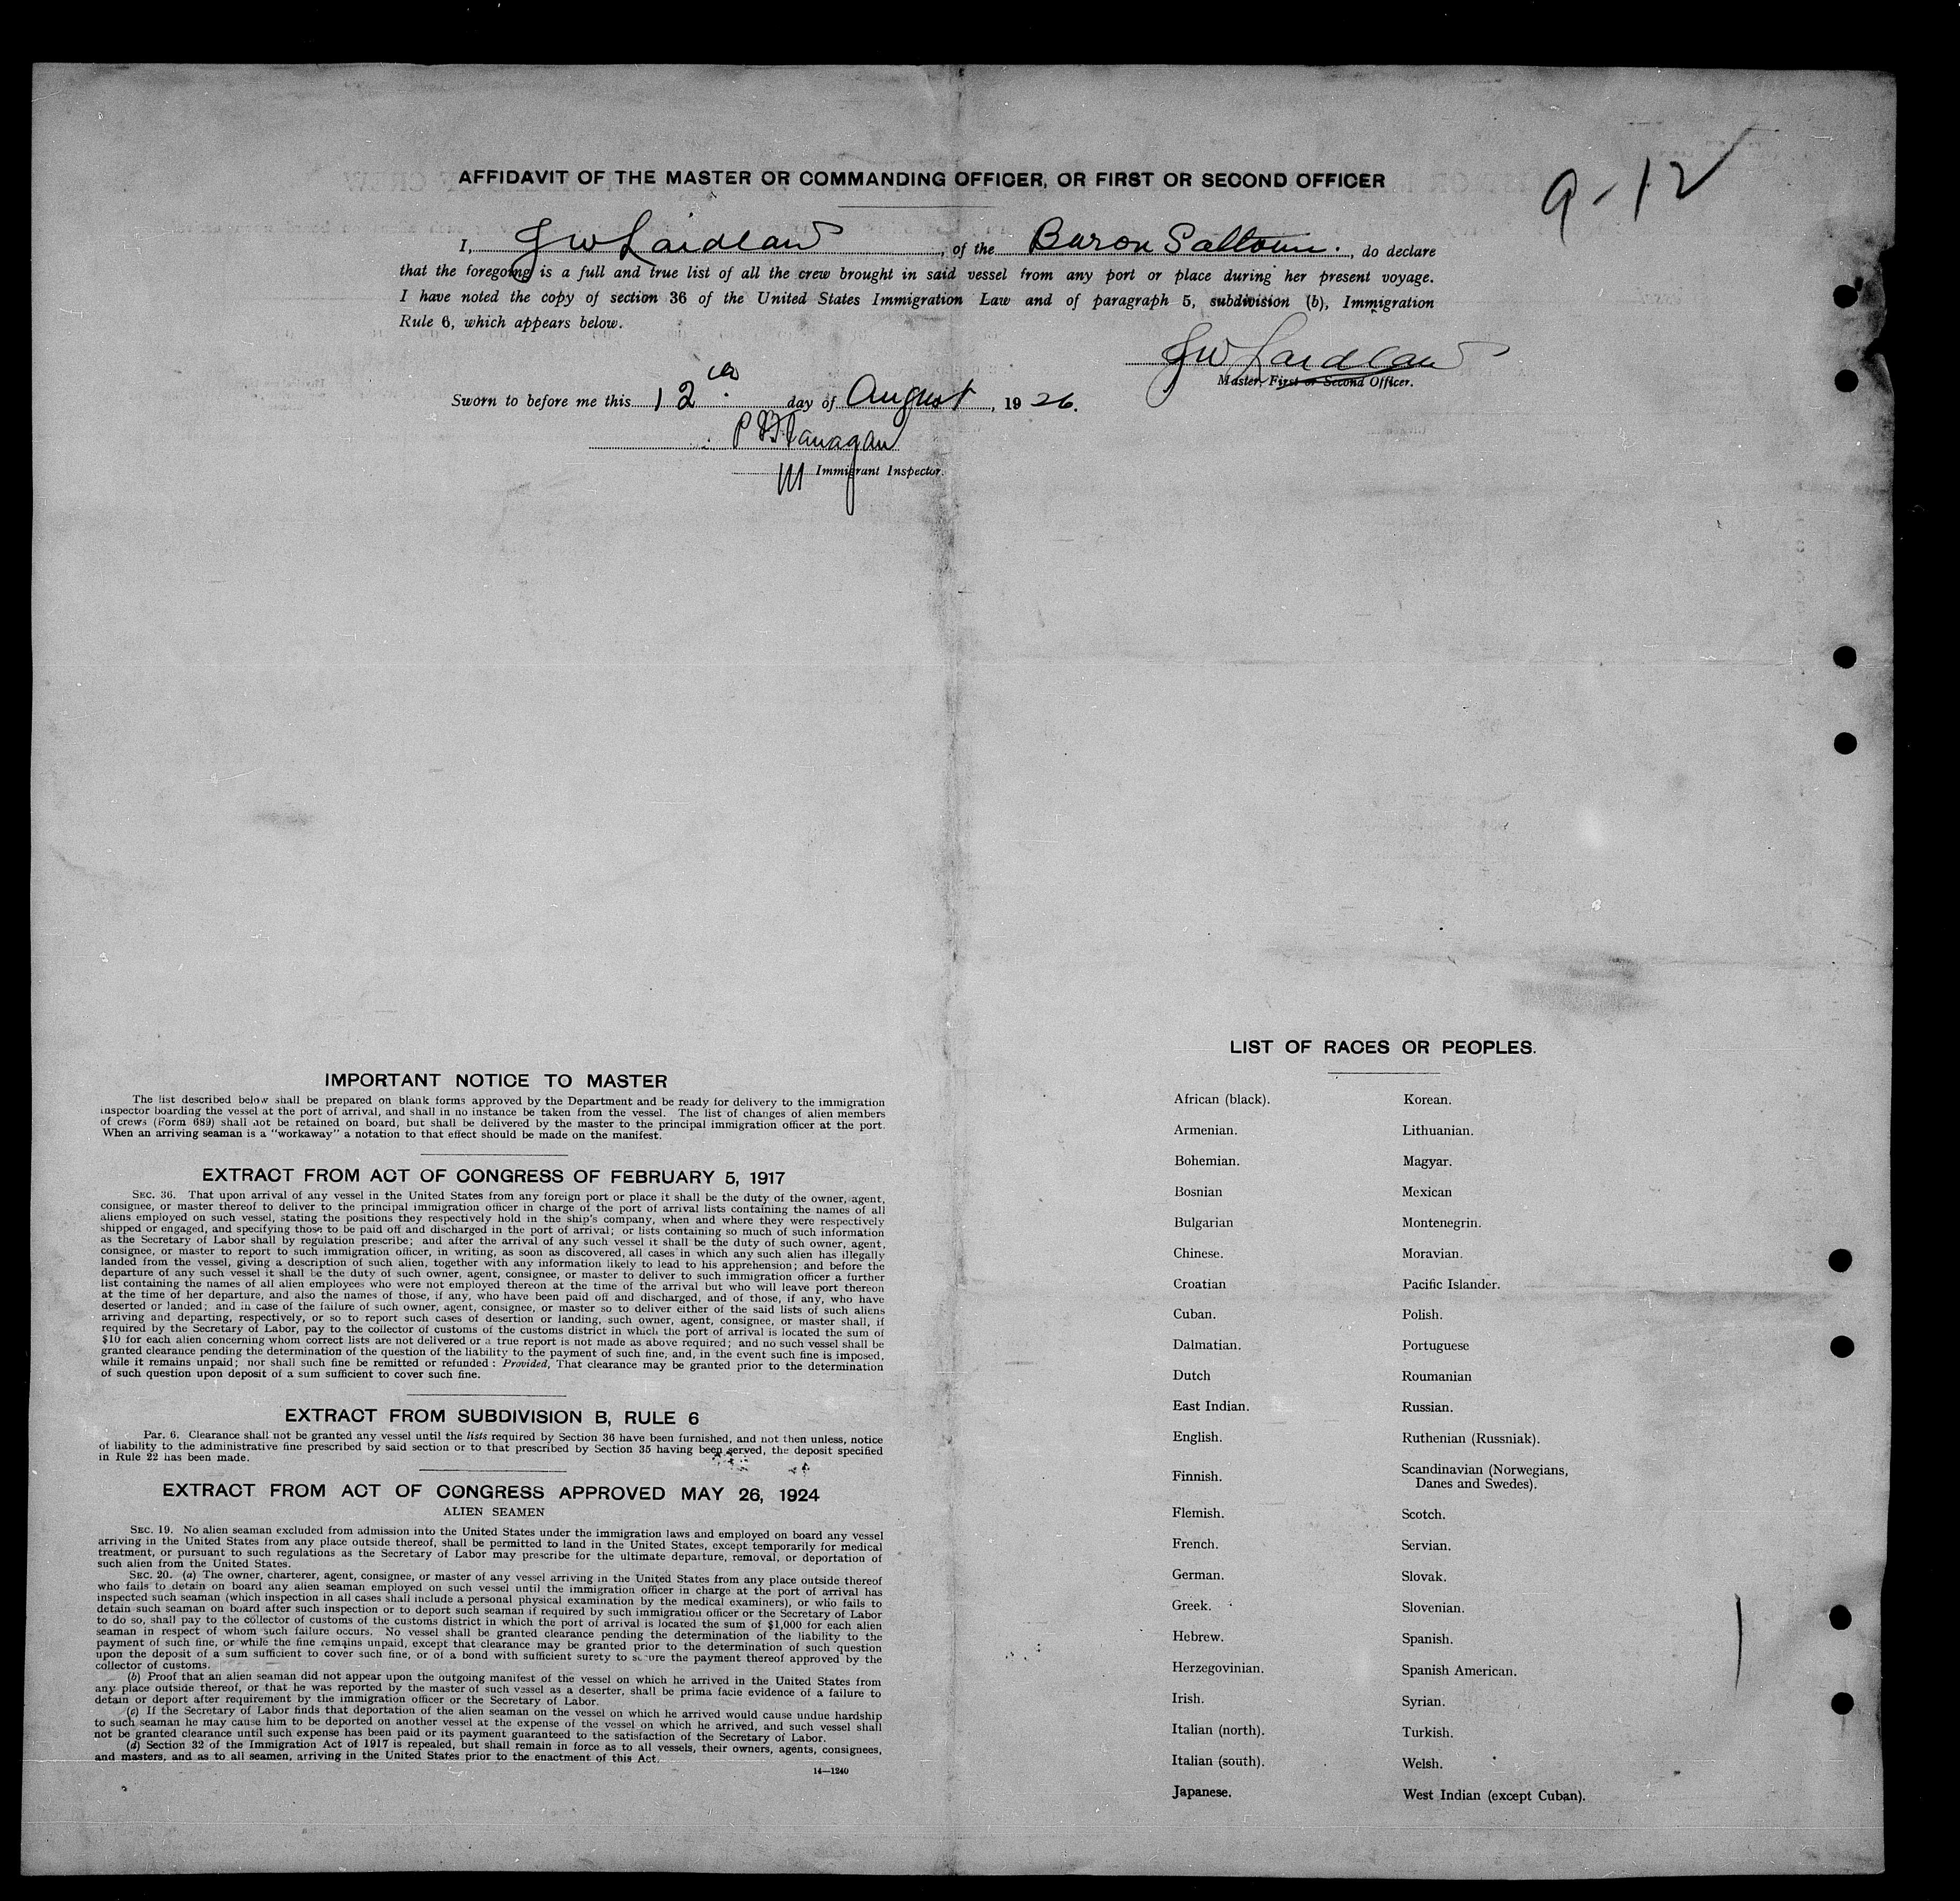 AFFIDAVIT OF THE MASTER OR COMMANDING OFFICER, OR FIRST OR SECOND OFFICER
9-12
I, J W Laidlaw, of the Baron Saltoun., do declare
that the foregoing is a full and true list of all the crew brought in said vessel from any port or place during her present voyage.
I have noted the copy of section 36 of the United States Immigration Law and of paragraph 5, subdivision (b), Immigration
Rule 6, which appears below.
J W Laidlaw
Master, First or Second Officer.
Sworn to before me this 12th day of August, 1926.
Flanagan
Immigrant Inspector.
IMPORTANT NOTICE TO MASTER
The list described below shall be prepared on blank forms approved by the Department and be ready for delivery to the immigration
inspector boarding the vessel at the port of arrival, and shall in no instance be taken from the vessel. The list of changes of alien members
of crews (Form 689) shall not be retained on board, but shall be delivered by the master to the principal immigration officer at the port.
When an arriving seaman is a "workaway" a notation to that effect should be made on the manifest.
EXTRACT FROM ACT OF CONGRESS OF FEBRUARY 5, 1917
SEC. 36. That upon arrival of any vessel in the United States from any foreign port or place it shall be the duty of the owner, agent,
consignee, or master thereof to deliver to the principal immigration officer in charge of the port of arrival lists containing the names of all
aliens employed on such vessel, stating the positions they respectively hold in the ship's company, when and where they were respectively
shipped or engaged, and specifying those to be paid off and discharged in the port of arrival; or lists containing so much of such information
as the Secretary of Labor shall by regulation prescribe; and after the arrival of any such vessel it shall be the duty of such owner, agent,
consignee, or master to report to such immigration officer, in writing, as soon as discovered, all cases in which any such alien has illegally
landed from the vessel, giving a description of such alien, together with any information likely to lead to his apprehension; and before the
departure of any such vessel it shall be the duty of such owner, agent, consignee, or master to deliver to such immigration officer a further
list containing the names of all alien employees who were not employed thereon at the time of the arrival but who will leave port thereon
at the time of her departure, and also the names of those, if any, who have been paid off and discharged, and of those, if any, who have
deserted or landed; and in case of the failure of such owner, agent, consignee, or master so to deliver either of the said lists of such aliens
arriving and departing, respectively, or so to report such cases of desertion or landing, such owner, agent, consignee, or master shall, if
required by the Secretary of Labor, pay to the collector of customs of the customs district in which the port of arrival is located the sum of
$10 for each alien concerning whom correct lists are not delivered or a true report is not made as above required; and no such vessel shall be
granted clearance pending the determination of the question of the liability to the payment of such fine, and, in the event such fine is imposed,
while it remains unpaid; nor shall such fine be remitted or refunded: Provided, That clearance may be granted prior to the determination
of such question upon deposit of a sum sufficient to cover such fine.
EXTRACT FROM SUBDIVISION B, RULE 6
Par. 6. Clearance shall not be granted any vessel until the lists required by Section 36 have been furnished, and not then unless, notice
of liability to the administrative fine prescribed by said section or to that prescribed by Section 35 having been served, the deposit specified
in Rule 22 has been made.
EXTRACT FROM ACT OF CONGRESS APPROVED MAY 26, 1924
ALIEN SEAMEN
SEC. 19. No alien seaman excluded from admission into the United States under the immigration laws and employed on board any vessel
arriving in the United States from any place outside thereof, shall be permitted to land in the United States, except temporarily for medical
treatment, or pursuant to such regulations as the Secretary of Labor may prescribe for the ultimate departure, removal, or deportation of
such alien from the United States.
SEC. 20. (a) The owner, charterer, agent, consignee, or master of any vessel arriving in the United States from any place outside thereof
who fails to detain on board any alien seaman employed on such vessel until the immigration officer in charge at the port of arrival has
inspected such seaman (which inspection in all cases shall include a personal physical examination by the medical examiners), or who fails to
detain such seaman on board after such inspection or to deport such seaman if required by such immigration officer or the Secretary of Labor
to do so, shall pay to the collector of customs of the customs district in which the port of arrival is located the sum of $1,000 for each alien
seaman in respect of whom such failure occurs. No vessel shall be granted clearance pending the determination of the liability to the
payment of such fine, or while the fine remains unpaid, except that clearance may be granted prior to the determination of such question
upon the deposit of a sum sufficient to cover such fine, or of a bond with sufficient surety to secure the payment thereof approved by the
collector of customs.
(b) Proof that an alien seaman did not appear upon the outgoing manifest of the vessel on which he arrived in the United States from
any place outside thereof, or that he was reported by the master of such vessel as a deserter, shall be prima facie evidence of a failure to
detain or deport after requirement by the immigration officer or the Secretary of Labor.
(c) If the Secretary of Labor finds that deportation of the alien seaman on the vessel on which he arrived would cause undue hardship
to such seaman he may cause him to be deported on another vessel at the expense of the vessel on which he arrived, and such vessel shall
not be granted clearance until such expense has been paid or its payment guaranteed to the satisfaction of the Secretary of Labor.
(d) Section 32 of the Immigration Act of 1917 is repealed, but shall remain in force as to all vessels, their owners, agents, consignees,
and masters, and as to all seamen, arriving in the United States prior to the enactment of this Act.
14—1240
LIST OF RACES OR PEOPLES.
African (black).
Armenian.
Bohemian.
Bosnian
Bulgarian
Chinese.
Croatian
Cuban.
Dalmatian.
Dutch
East Indian.
English.
Finnish.
Flemish.
French.
German.
Greek.
Hebrew.
Herzegovinian.
Irish.
Italian (north).
Italian (south).
Japanese.
Korean.
Lithuanian.
Magyar.
Mexican
Montenegrin.
Moravian.
Pacific Islander.
Polish.
Portuguese
Roumanian
Russian.
Ruthenian (Russniak).
Scandinavian (Norwegians,
Danes and Swedes).
Scotch.
Servian.
Slovak.
Slovenian.
Spanish.
Spanish American.
Syrian.
Turkish.
Welsh.
West Indian (except Cuban).